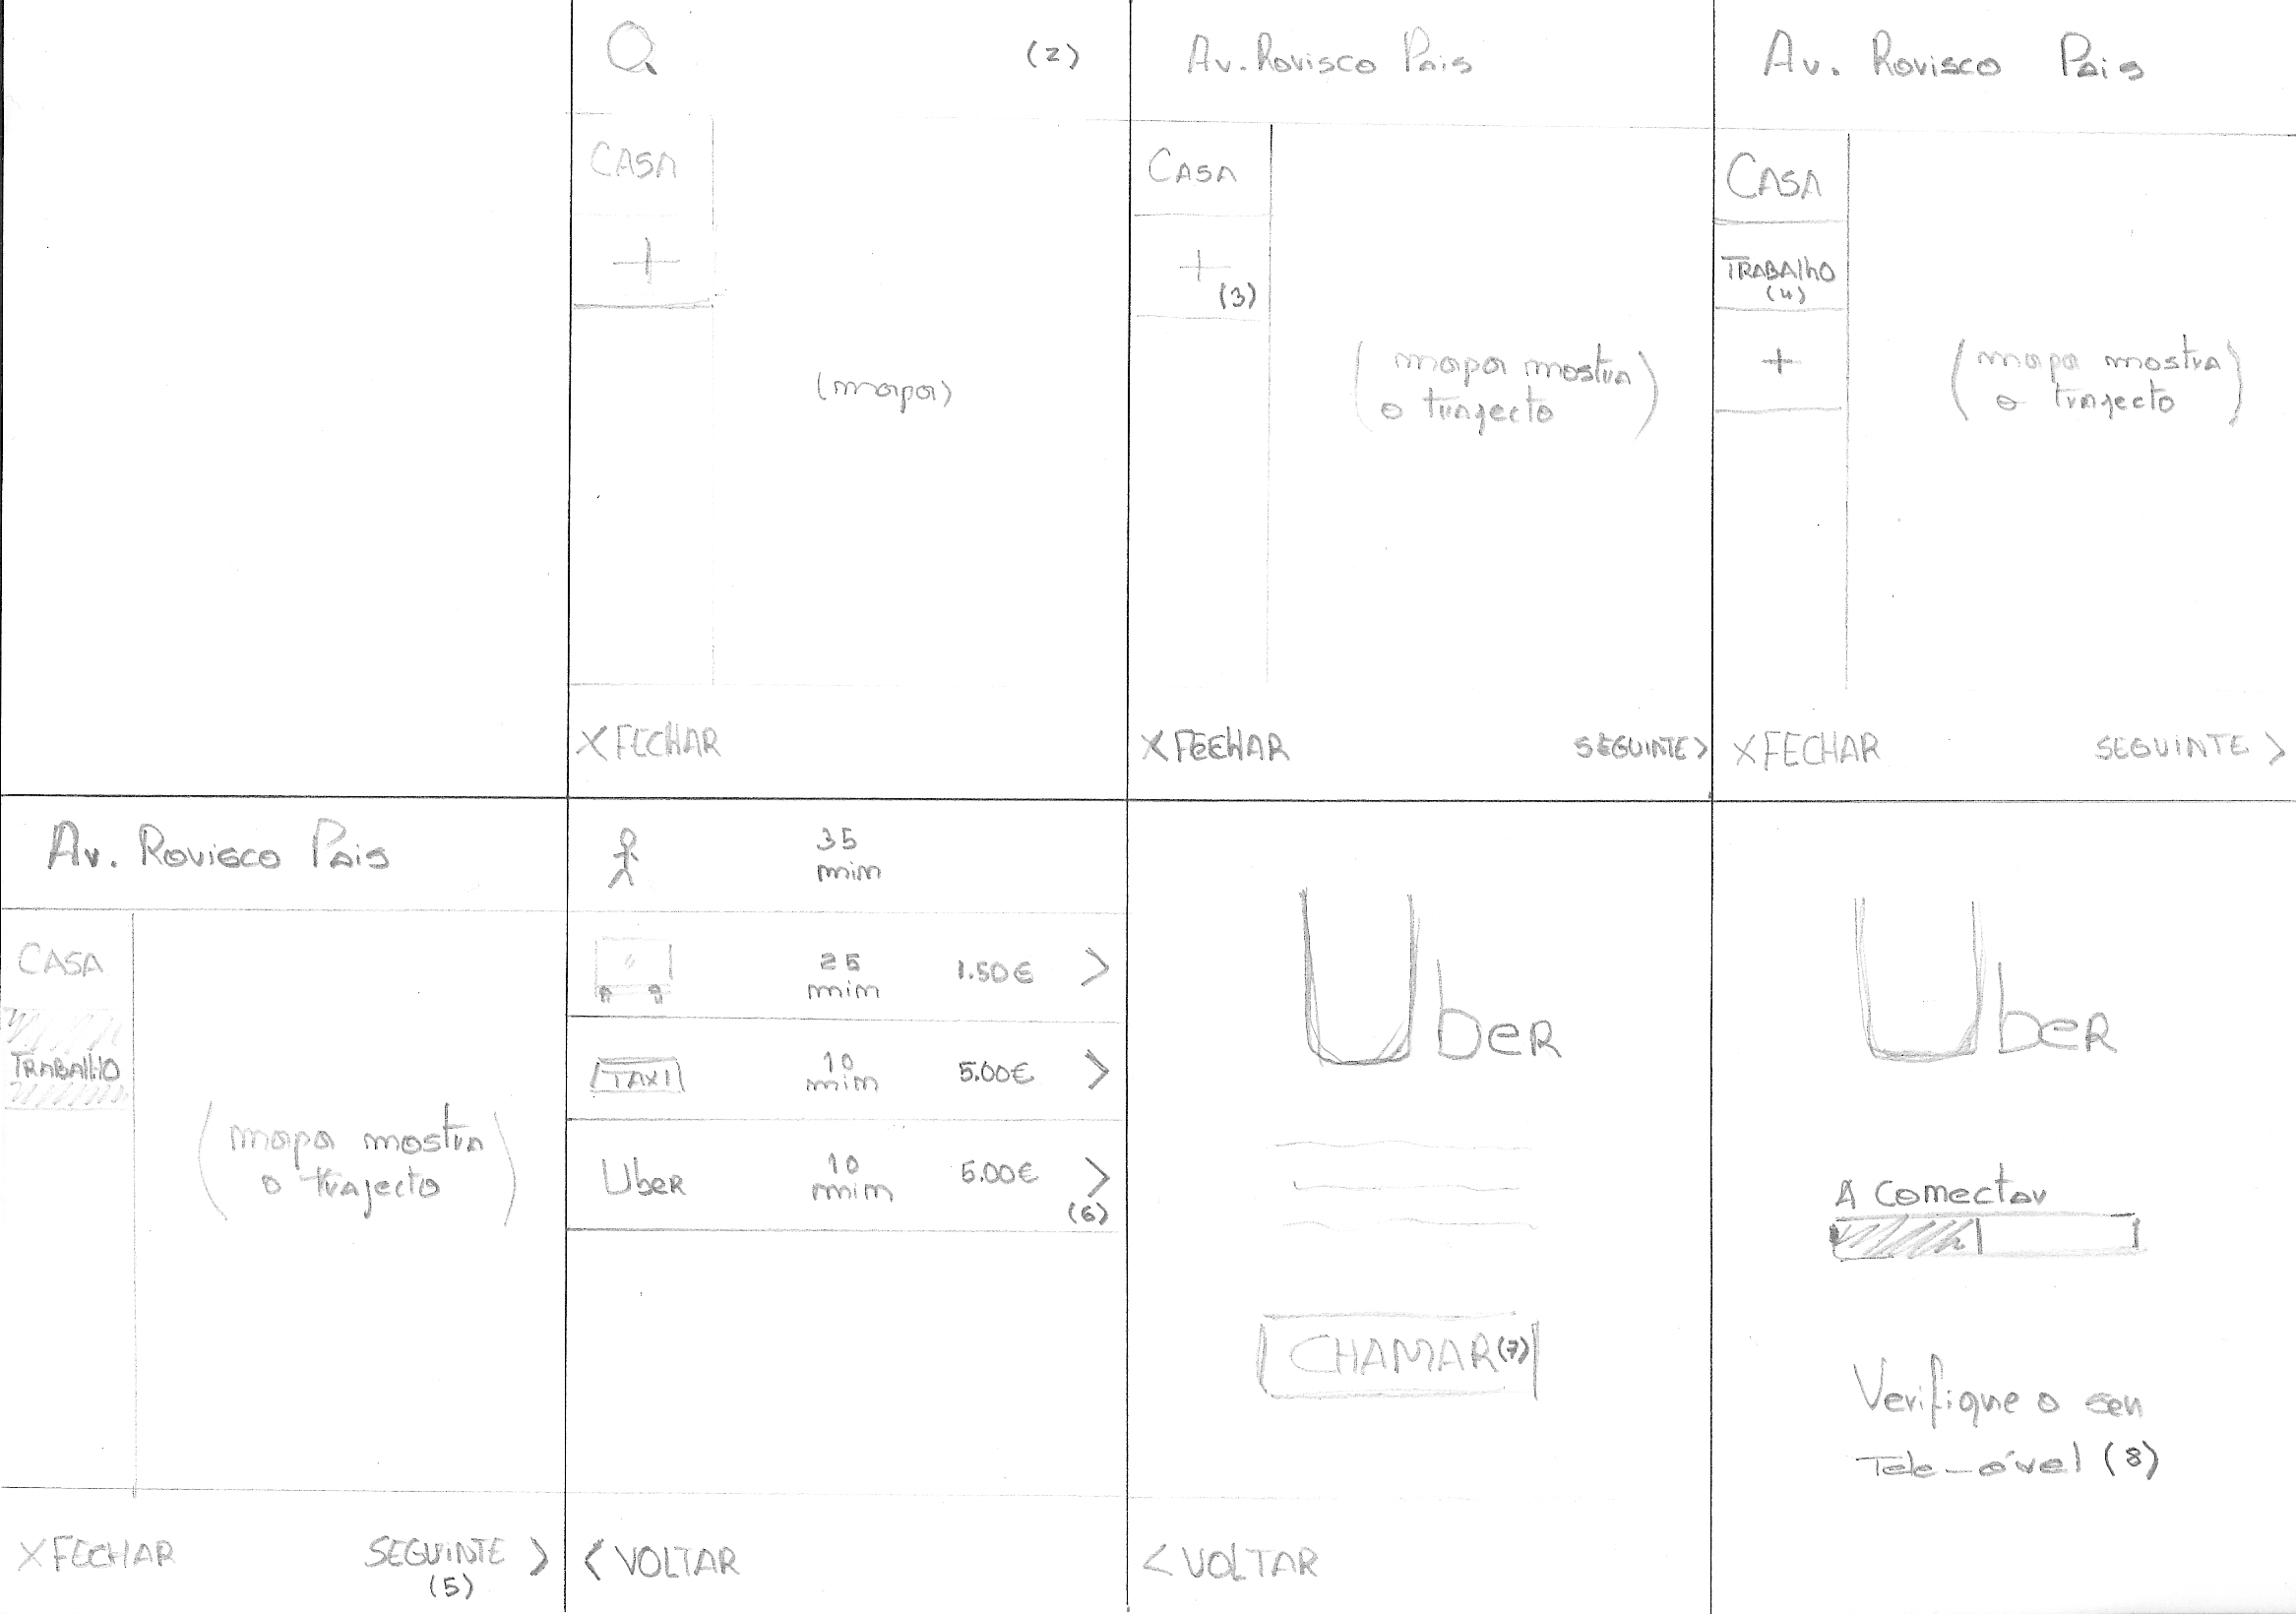 (2)
CASA
+
(mapa)
X FECHAR
Av. Rovisco Pais
CASA
+
(3)
(mapa mostra
o trajecto)
X FECHAR SEGUINTE >
Av. Rovisco Pais
CASA
TRABAlhO
(4)
+
(mapa mostra
o trajecto)
X FECHAR SEGUINTE >
Av. Rovisco Pais
CASA
TRABAlhO
(mapa mostra
o trajecto)
X FECHAR SEGUINTE >
(5)
35
min
25
min 1.50€ >
TAXI 10
min 5.00€ >
Uber 10
min 5.00€ >
(6)
< VOLTAR
UbeR
CHAMAR (7)
< VOLTAR
UbeR
A conectar
Verifique o seu
Tele-óvel (8)